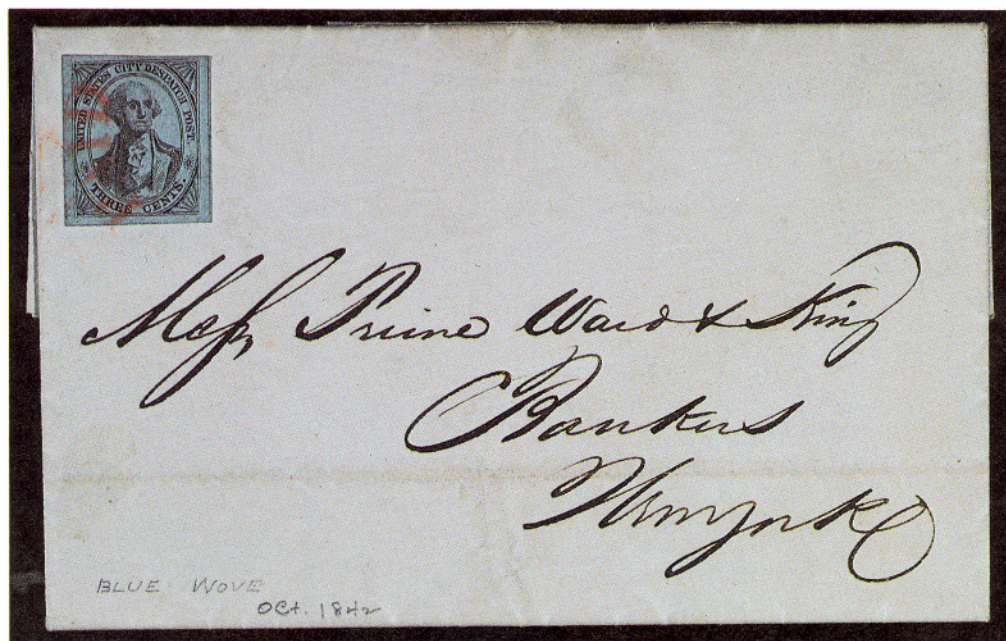 UNITED STATES CITY DESPATCH POST.
THREE CENTS.
Messrs Prime Ward & King
Bankers
New York
BLUE WOVE
Oct. 1842